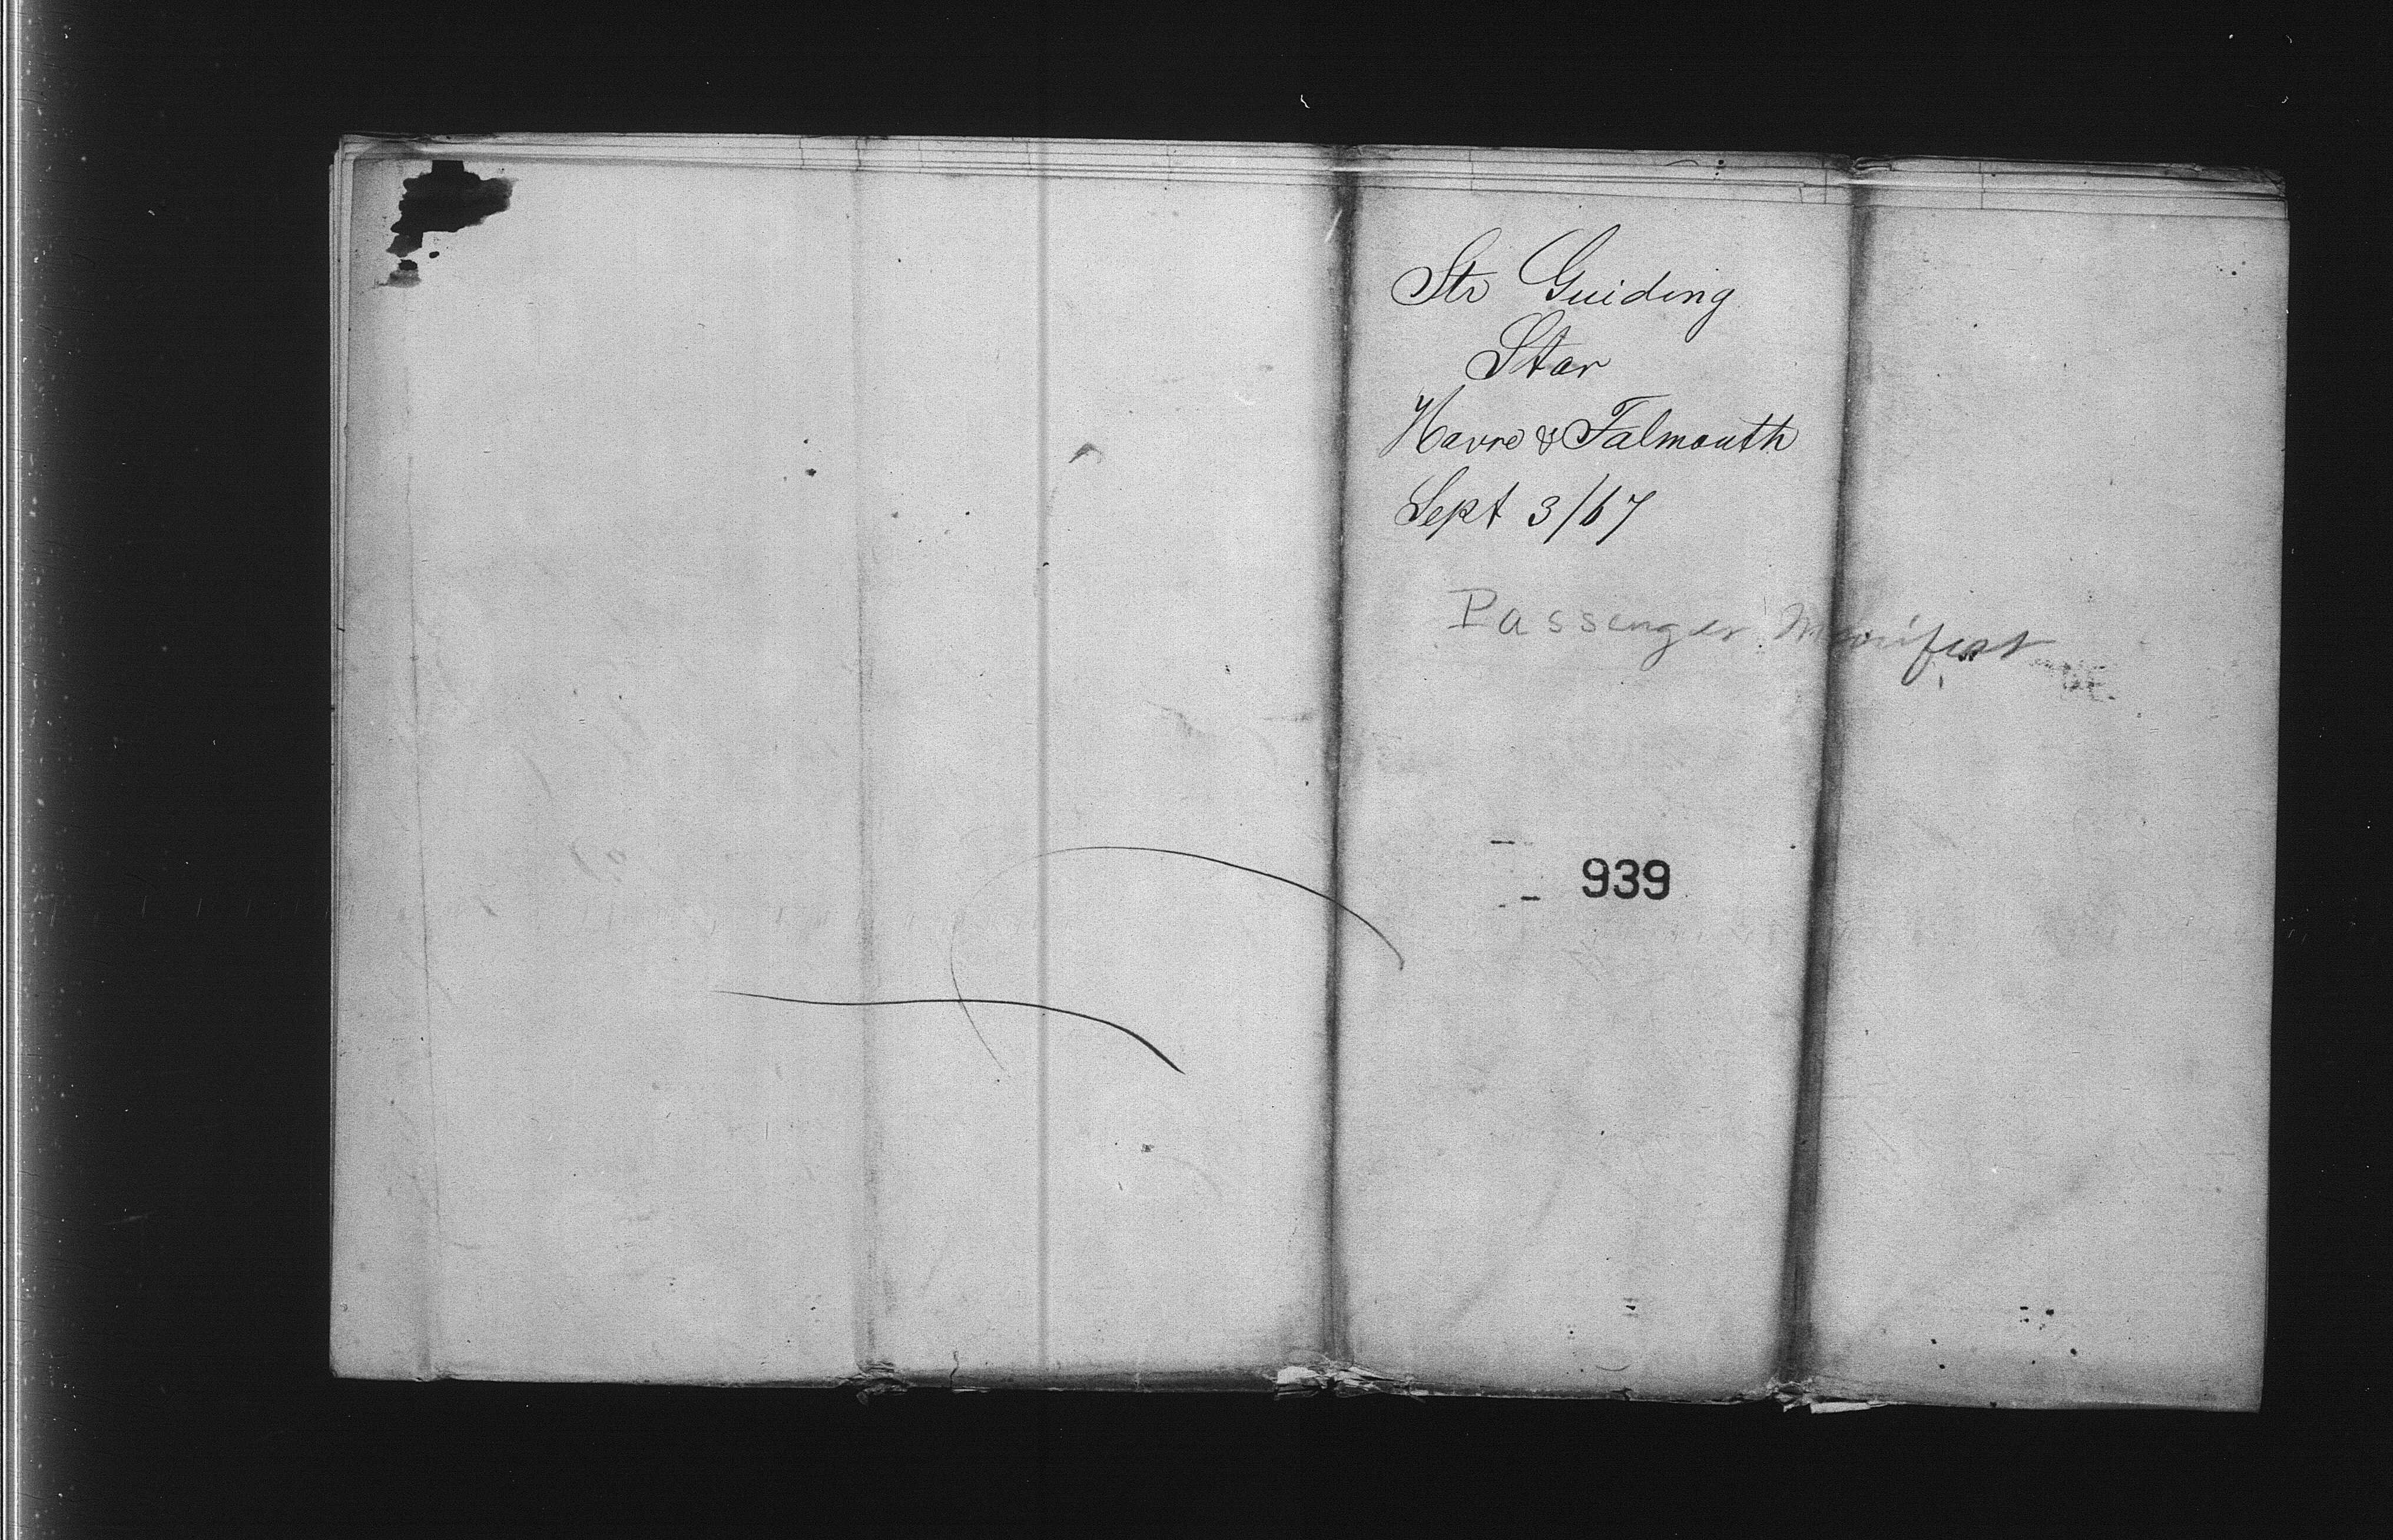 Str Guiding
Star
Havre & Falmouth
Sept 3/67
Passenger Manifest
939